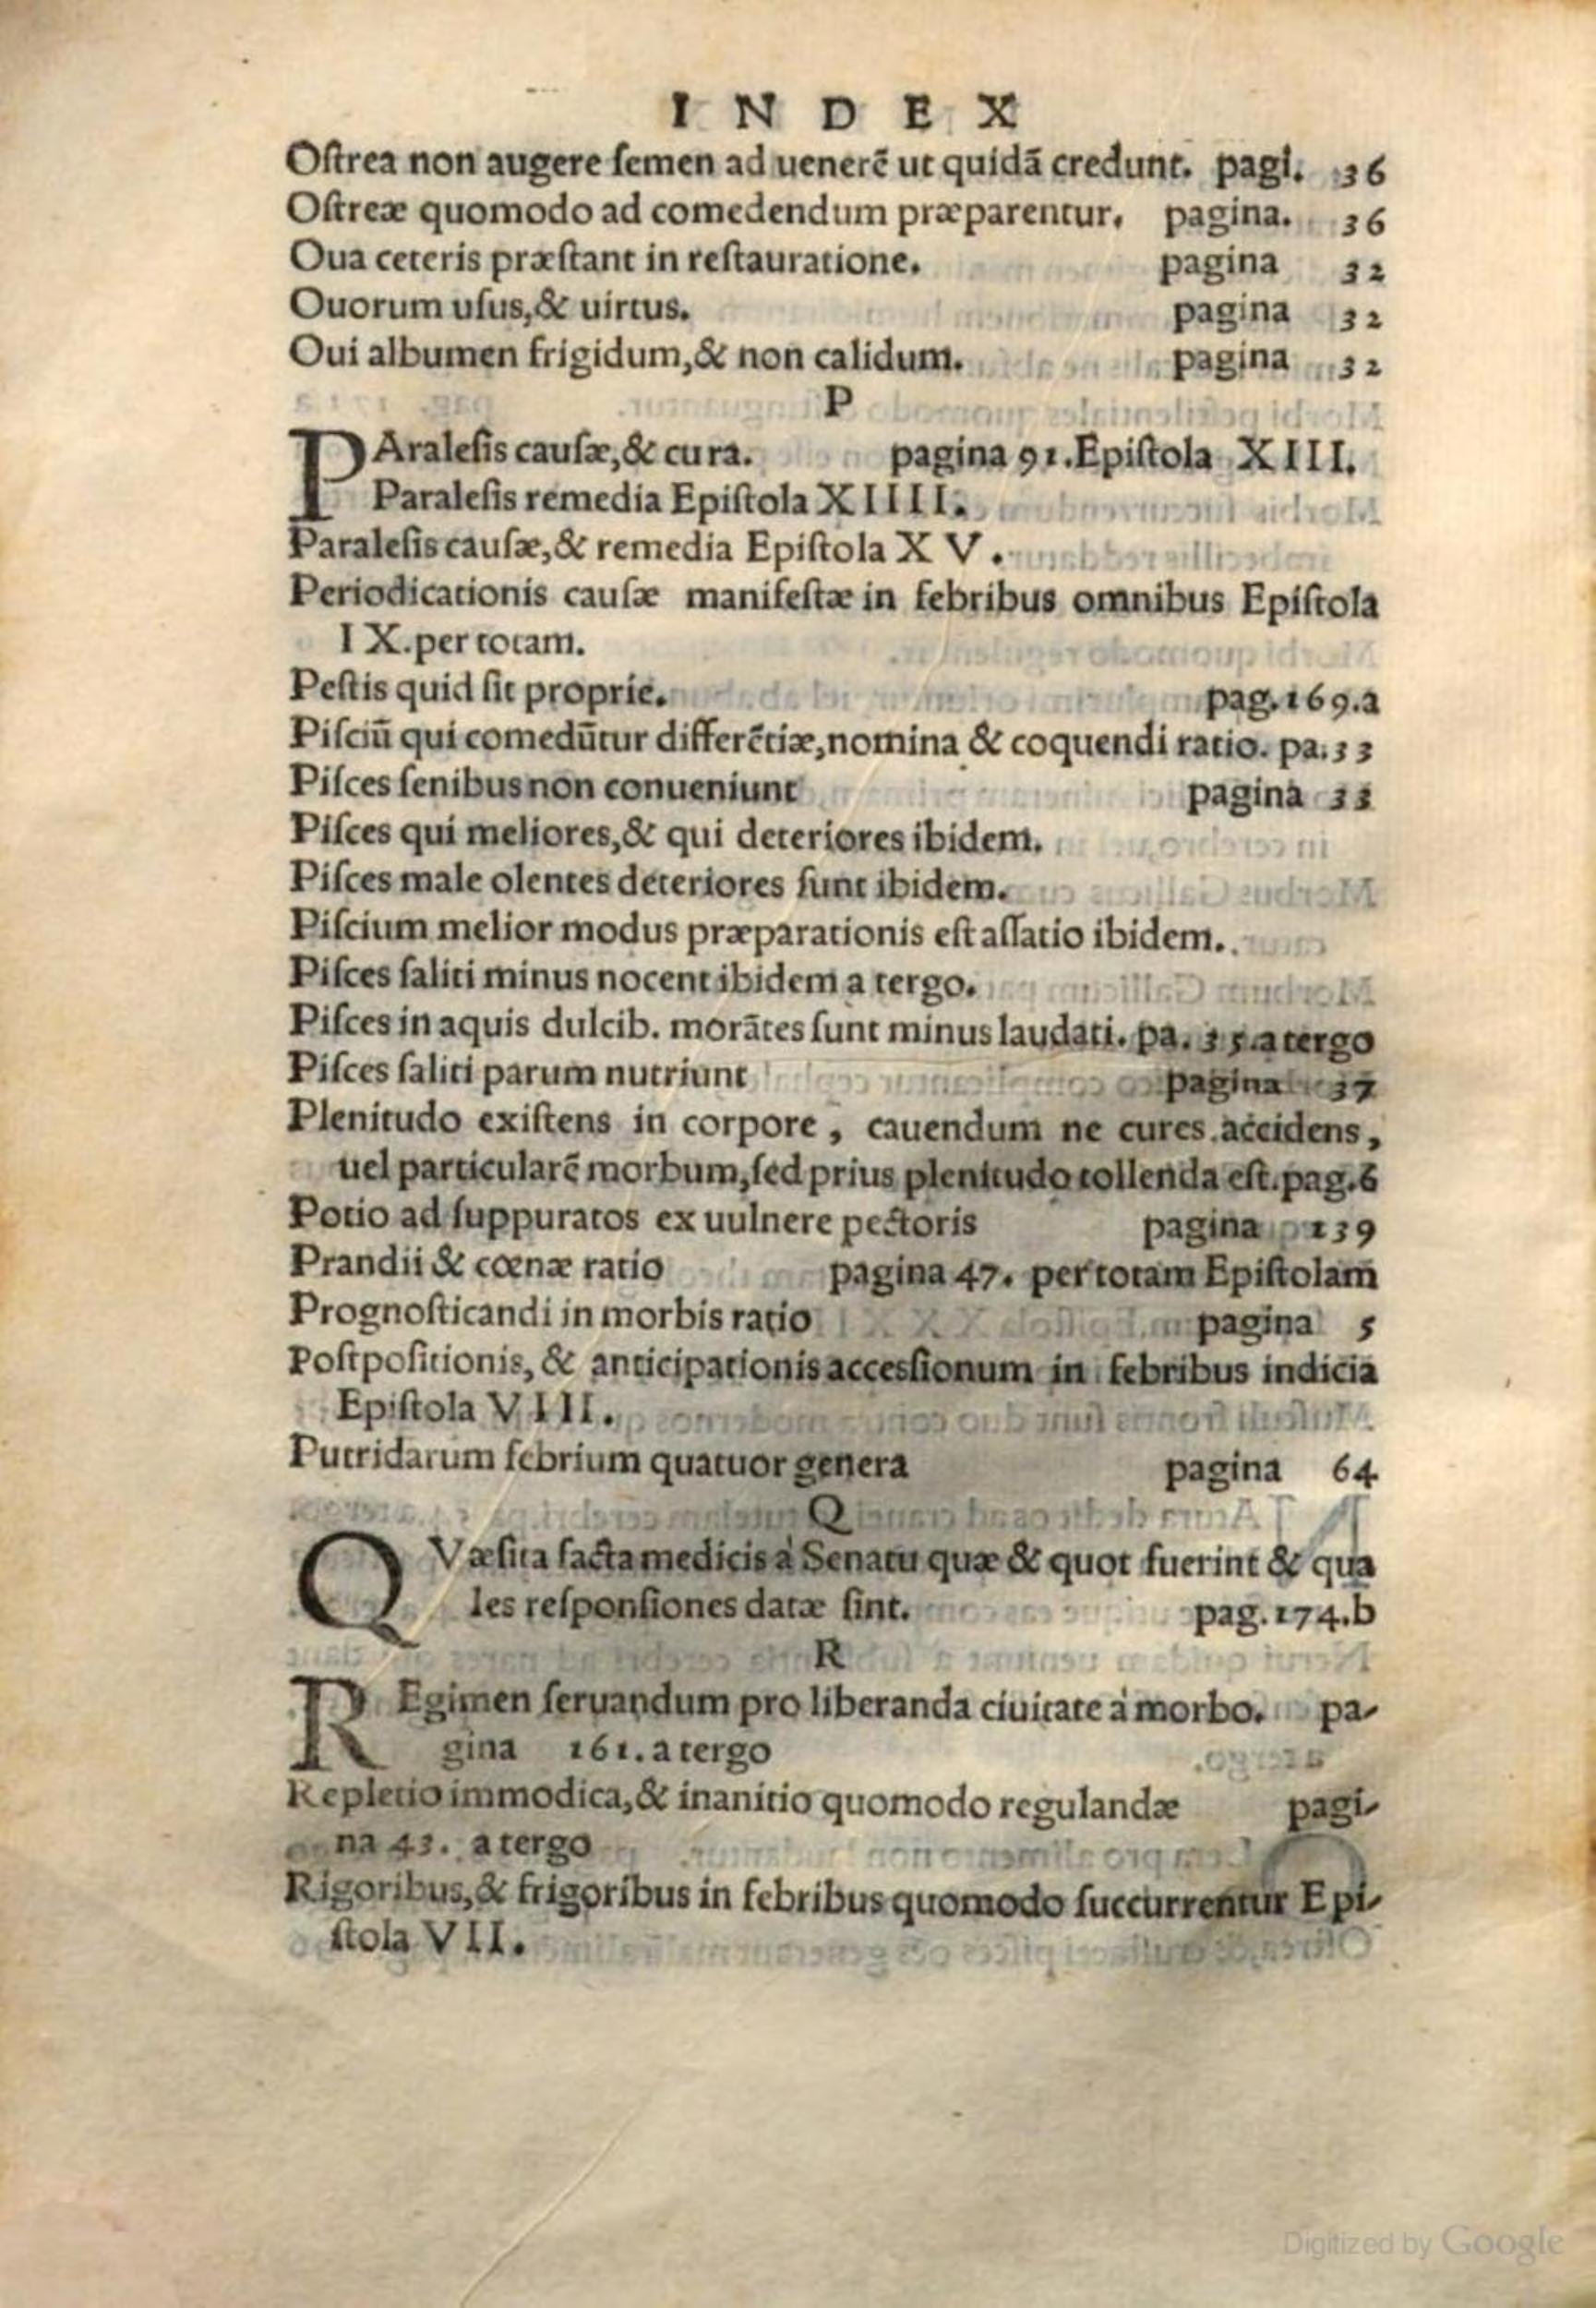 INDEX
Oſtrea non augere ſemen ad uenerē ut quidā credunt. pagi. 36
Oſtreæ quomodo ad comedendum præparentur. pagina. 36
Oua ceteris præſtant in reſtauratione. pagina 32
Ouorum uſus,& uirtus. pagina 32
Oui albumen frigidum,& non calidum. pagina 32
P
PAraleſis cauſæ,& cura. pagina 91.Epiſtola XIII.
Paraleſis remedia Epiſtola XIIII.
Paraleſis cauſæ,& remedia Epiſtola XV.
Periodicationis cauſæ manifeſtæ in febribus omnibus Epiſtola
IX.per totam.
Peſtis quid ſit proprie. pag.169.a
Piſciū qui comedūtur differētiæ,nomina & coquendi ratio. pa.33
Piſces ſenibus non conueniunt pagina 33
Piſces qui meliores,& qui deteriores ibidem.
Piſces male olentes deteriores ſunt ibidem.
Piſcium melior modus præparationis eſt aſſatio ibidem.
Piſces ſaliti minus nocent ibidem a tergo.
Piſces in aquis dulcib. morātes ſunt minus laudati. pa. 35.a tergo
Piſces ſaliti parum nutriunt pagina 37
Plenitudo exiſtens in corpore, cauendum ne cures accidens,
uel particularē morbum,ſed prius plenitudo tollenda eſt.pag.6
Potio ad ſuppuratos ex uulnere pectoris pagina 139
Prandii & cœnæ ratio pagina 47. per totam Epiſtolam
Prognoſticandi in morbis ratio pagina 5
Poſtpoſitionis, & anticipationis acceſſionum in febribus indicia
Epiſtola VIII.
Putridarum febrium quatuor genera pagina 64
Q
QVæſita facta medicis à Senatu quæ & quot fuerint & qua
les reſponſiones datæ ſint. pag.174.b
R
REgimen ſeruandum pro liberanda ciuitate à morbo. pa-
gina 161.a tergo
Repletio immodica,& inanitio quomodo regulandæ pagi-
na 43. a tergo
Rigoribus,& frigoribus in febribus quomodo ſuccurrentur Epi-
ſtola VII.
Digitized by Google